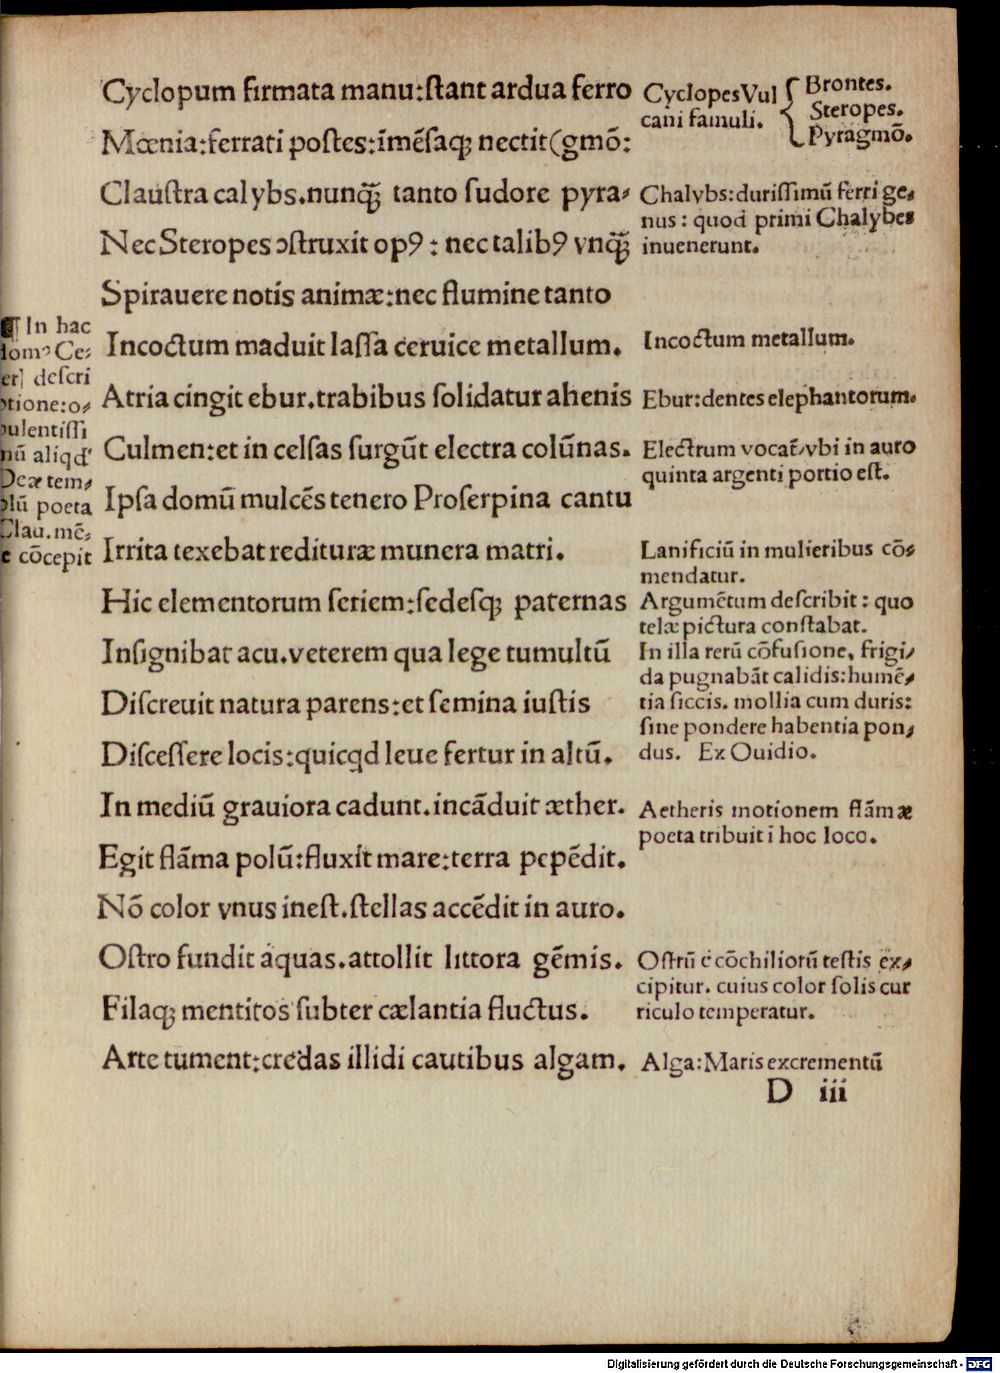 Cyclopum firmata manu:ſtant ardua ferro
Mœnia:ferrati poſtes:īmēſaqꝫ nectit(gmō:
Clauſtra calybs.nunq̄ꝫ tanto ſudore pyra-
Nec Steropes ↄſtruxit opꝰ: nec talibꝰ vnq̄ꝫ
Spirauere notis animæ:nec flumine tanto
Incoctum maduit laſſa ceruice metallum.
Atria cingit ebur.trabibus ſolidatur ahenis
Culmen:et in celſas ſurgūt electra colūnas.
Ipſa domū mulcēs tenero Proſerpina cantu
Irrita texebat redituræ munera matri.
Hic elementorum ſeriem:ſedeſqꝫ paternas
Inſignibat acu.veterem qua lege tumultū
Diſcreuit natura parens:et ſemina iuſtis
Diſceſſere locis:quicqd leue fertur in altū.
In mediū grauiora cadunt.incāduit æther.
Egit flāma polū:fluxit mare:terra pepēdit.
Nō color vnus ineſt.ſtellas accēdit in auro.
Oſtro fundit aquas.attollit littora gēmis.
Filaqꝫ mentitos ſubter cælantia fluctus.
Arte tument:credas illidi cautibus algam.
Cyclopes Vul
cani famuli.
Brontes.
Steropes.
Pyragmō.
Chalybs:duriſſimū ferri ge-
nus: quod primi Chalybes
inuenerunt.
Incoctum metallum.
Ebur:dentes elephantorum.
Electrum vocat̄,vbi in auro
quinta argenti portio eſt.
Lanificiū in mulieribus cō-
mendatur.
Argumētum deſcribit: quo
telæ pictura conſtabat.
In illa rerū cōfuſione, frigi-
da pugnabāt calidis:humē-
tia ſiccis. mollia cum duris:
ſine pondere habentia pon-
dus. Ex Ouidio.
Aetheris motionem flāmæ
poeta tribuit ī hoc loco.
Oſtrū e cōchiliorū teſtis ex-
cipitur. cuius color ſolis cur
riculo temperatur.
Alga:Maris excrementū
¶ In hac
domꝰ Ce-
deſcri
ptione:o-
pulentiſſi
mū aliqd'
Deæ tem-
plū poeta
Clau.mē-
te cōcepit
D iii
Digitalisierung gefördert durch die Deutsche Forschungsgemeinschaft - DFG